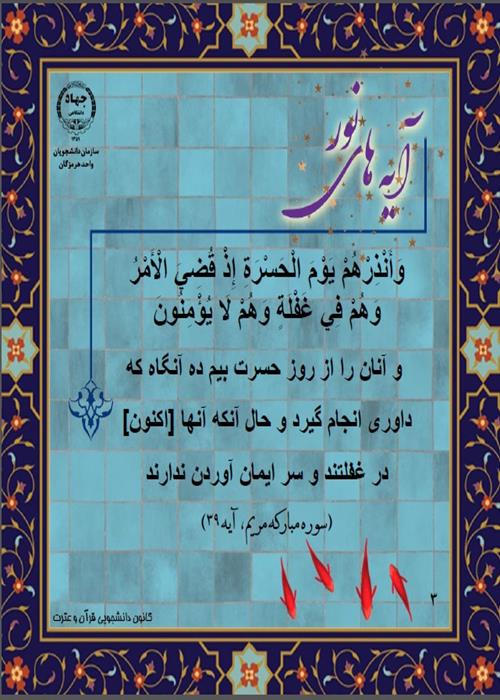 جهاد
دانشگاهی
سازمان دانشجویان
واحد هرمزگان
آیه های نور
وَأَنْذِرْهُمْ يَوْمَ الْحَسْرَةِ إِذْ قُضِيَ الْأَمْرُ
وَهُمْ فِي غَفْلَةٍ وَهُمْ لَا يُؤْمِنُون
و آنان را از روز حسرت بیم ده آنگاه که
داوری انجام گیرد و حال آنکه آنها [اکنون]
در غفلتند و سر ایمان آوردن ندارند
(سوره مبارکه مریم، آیه ۳۹)
۳
کانون دانشجویی قرآن و عترت